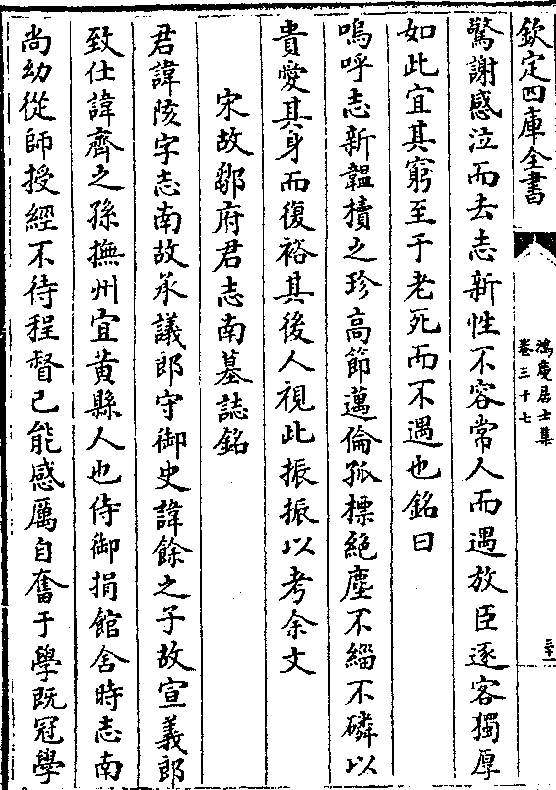 欽定四庫全書
鴻慶居士集
卷三十七
三十一
驚謝感泣而去志新性不容常人而遇放臣逐客獨厚
如此宜其窮至于老死而不遇也銘曰
嗚呼志新韞櫝之珍高節邁倫孤標絶塵不緇不磷以
貴愛其身而復裕其後人視此振振以考余文
宋故鄒府君志南墓誌銘
君諱陔字志南故承議郎守御史諱餘之子故宣義郎
致仕諱齊之孫撫州宜黄縣人也侍御捐館舍時志南
尚幼從師授經不待程督已能感厲自奮于學既冠學